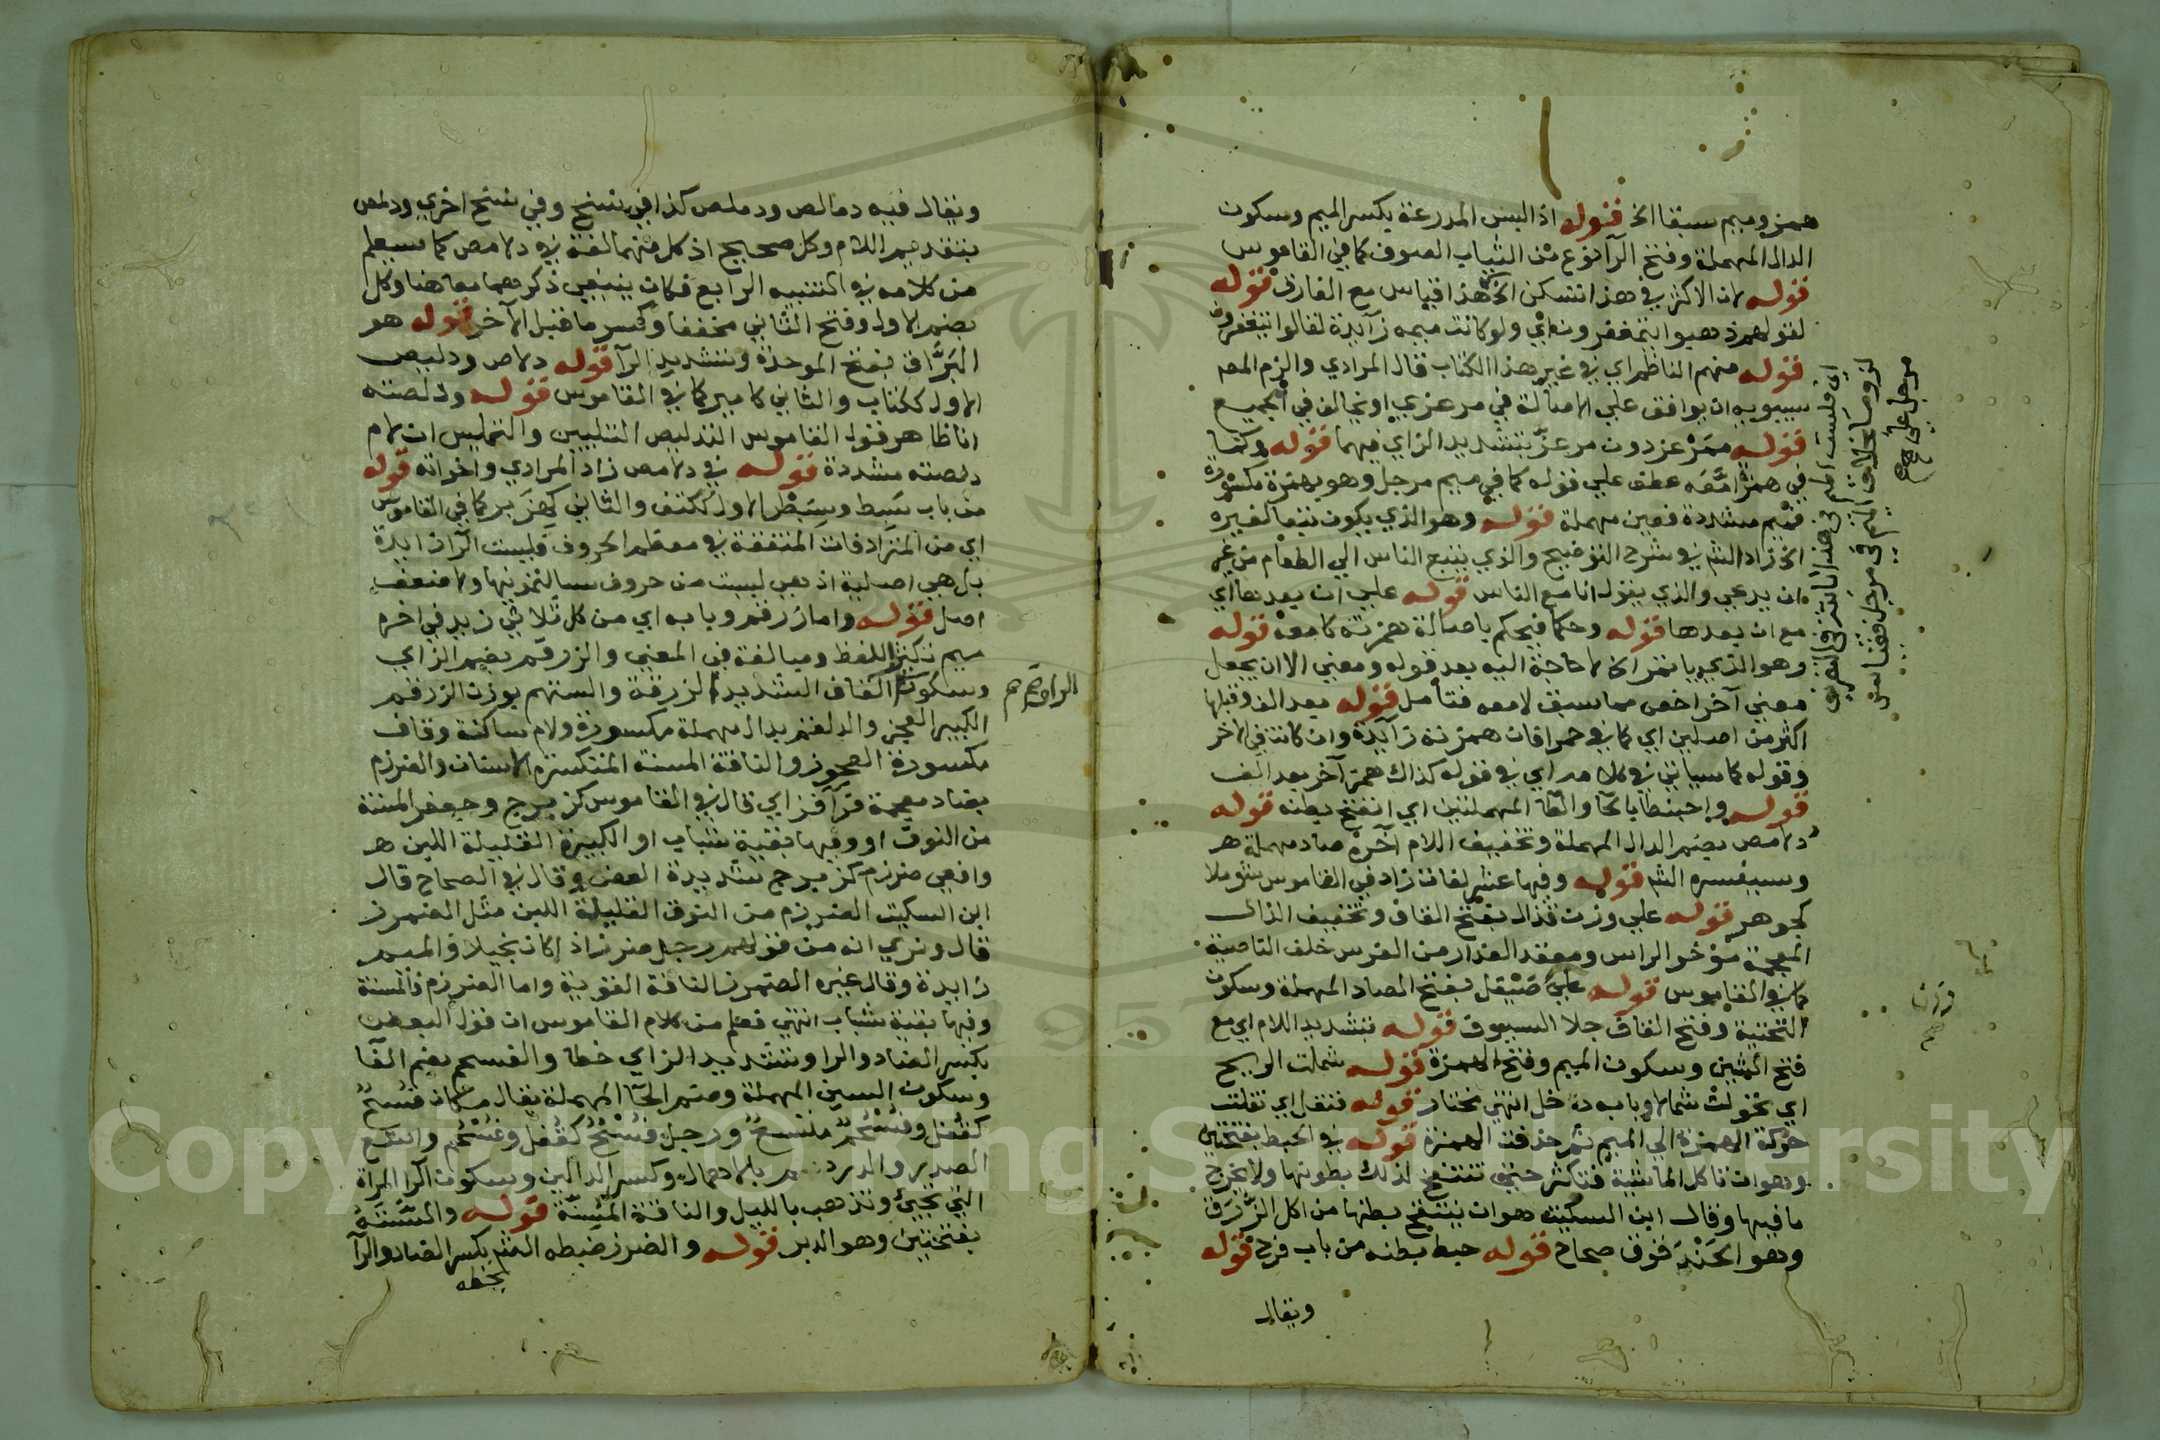 همز وميم سبقا الخ قوله اذ البس المدرعة بكسر الميم وسكون
الدال المهملة وفتح الرآ نوع من الثياب الصوف كما في القاموس
قوله لان الاكثر في هذا تسكن الخ هذا قياس مع الفارق قوله
لقولهم ذهبوا ولو كانت ميمه زآيدة لقالوا
قوله منهم الناظم اي في غير هذا الكتاب قال المرادي والزم المص
سيبويه ان يوافق علي الاصالة في مرعزي او يخالف في الجميع
قوله ممرعز دون مرعز بتشديد الزاي فيهما قوله وكما
في همز امعه عطف علي قوله كما في ميم مرجل وهو بهمزة مكسورة
فميم مشددة فعين مهملة قوله وهو الذي يكون تبعا لغيره
الخ زاد الشم في شرح التوضيح والذي يتبع الناس الي الطعام من غير
ان يدعي والذي يقول انا مع الناس قوله علي ان بعدها اي
مع ان بعدها قوله وحكما فيحكم باصالة همزته كامعة قوله
وهو الذي ياتمر الخ لا حاجة اليه بعد قوله ومعني الا ان يجعل
معني آخر اخص مما سبق لامعه فتأمل قوله بعد الف وقبلها
اكثر من اصلين اي كما في حمرا فان همزته زآيدة وان كانت في الاخر
وقوله كما سياتي في كلامه اي في قوله كذاك همز آخر بعد الف
قوله واحبنطا بالحآ والطآ المهملتين اي انتفخ بطنه قوله
دلامص بضم الدال المهملة وتخفيف اللام آخره صاد مهملة هر
وسيفسره الشم قوله وفيها عشر لغات زاد في القاموس شوملا
كجوهر قوله علي وزن قذال بفتح القاف وتخفيف الذال
المعجمة مؤخر الراس ومعقد العذار من الفرس خلف الناصية
كما في القاموس قوله علي صيقل بفتح الصاد المهملة وسكون
التحتية وفتح القاف جلا السيوف قوله بتشديد اللام اي مع
فتح الشين وسكون الميم وفتح الهمزة قوله شملت الريح
اي تحولت شمالا وبابه دخل انتهي مختار قوله فنقل اي نقلت
حركة الهمزة الي الميم ثم حذفت الهمزة قوله في الحبط بفتحتين
وهو ان تاكل الماشية فتكثر حتي تنتفخ لذلك بطونها ولا يخرج
ما فيها وقال ابن السكيت هو ان ينتفخ بطنها من اكل الذرق
وهو الحندقوق صحاح قوله حبط بطنه من باب فرح قوله
ويقال
اي فليست الميم في هذا
لزوما بخلاف الميم في مرجل فقياس
مرجل علي
ويقال فيه دمالص ودملص كذا في نسخ وفي نسخ اخري ودلمص
بتقديم اللام وكل صحيح اذ كل منهما لغة في دلامص كما سيعلم
من كلامه في التنبيه الرابع فكان ينبغي ذكرهما معا هنا وكل
بضم الاول وفتح الثاني مخففا وكسر ما قبل الآخر قوله هو
البراق بفتح الموحدة وتشديد الرآ قوله دلاص ودليص
الاول ككتاب والثاني كامير كما في القاموس قوله ودلصته
انا ظاهر قول القاموس التدليص التليين والتمليس ان لام
دلصته مشددة قوله في دلامص زاد المرادي واخواته قوله
من باب سبط وسبطر الاول ككتف والثاني كهزبر كما في القاموس
اي من المترادفات المتفقة في معظم الحروف فليست الرآ زايدة
بل هي اصلية اذ هي ليست من حروف سالتمونيها ولا ضعف
اصل قوله واما زرقم وبابه اي من كل ثلاثي زيد في اخره
ميم تكثيرا للفظ ومبالغة في المعني والزرقم بضم الزاي
وسكون القاف الشديد الزرقة والستهم بوزن الزرقم
الكبير العجز والدلقم بدال مهملة مكسورة ولام ساكنة وقاف
مكسورة العجوز والناقة المسنة المتكسرة الاسنان والضرزم
بضاد معجمة فرآ فزاي قال في القاموس كزبرج وجعفر المسنة
من النوق او وفيها بقية شباب او الكبيرة القليلة اللبن هر
وافعي ضرزم كزبرج شديدة العض وقال في الصحاح قال
ابن السكيت الضرزم من النوق القليلة اللبن مثل الضمرز
قال ونري انه من قولهم رجل ضرز اذا كان بخيلا والميم
زايدة وقال غيره الضمرز الناقة القوية واما الضرزم فالمسنة
وفيها بقية شباب انتهي فعلم من كلام القاموس ان قول البعض
بكسر الضاد والرا وتشديد الزاي خطا والفسحم بضم الفآ
وسكون السين المهملة وضم الحآ المهملة يقال مكان فسح
كقفل وفسحم منفسح ورجل فسح كقفل وفسحم واسع
الصدر والدردم بالاهمال وكسر الدالين وسكون الرآ المرأة
التي تجيئ وتذهب بالليل والناقة المسنة قوله والسته
بفتحتين وهو الدبر قوله والضرز ضبطه الشم بكسر الضاد والرآ
بخطه